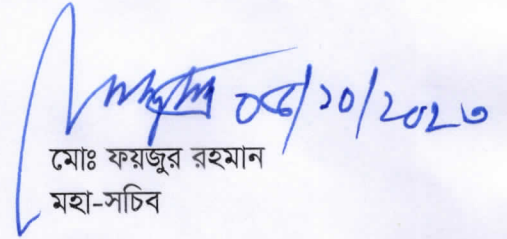 ০৫/১০/২০২৩
মোঃ ফয়জুর রহমান
মহা-সচিব